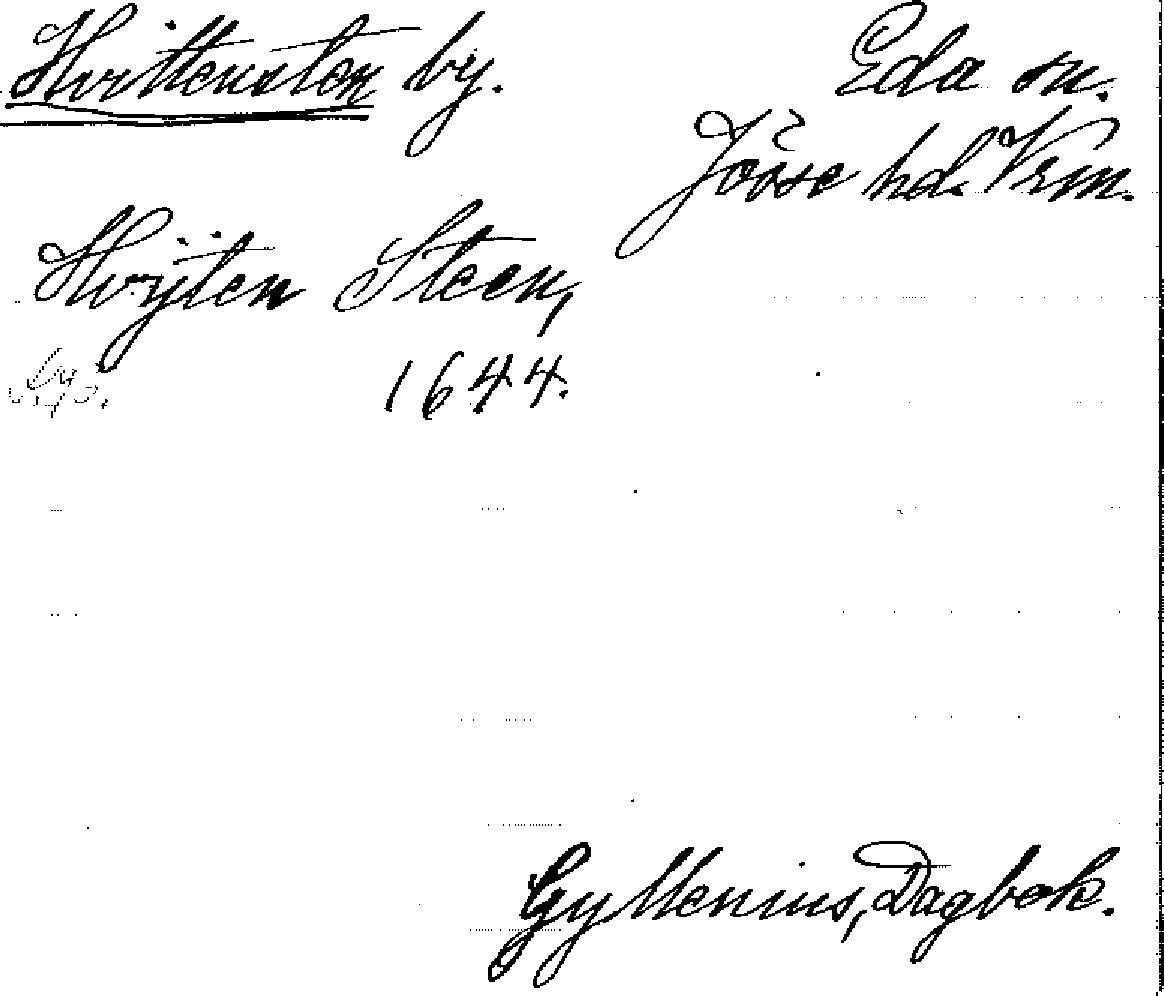 Hvittensten by. Eda sn.
Jösse hd. Vrm.
Hvÿten Steen,
1644.
Gyllenius, Dagbok.